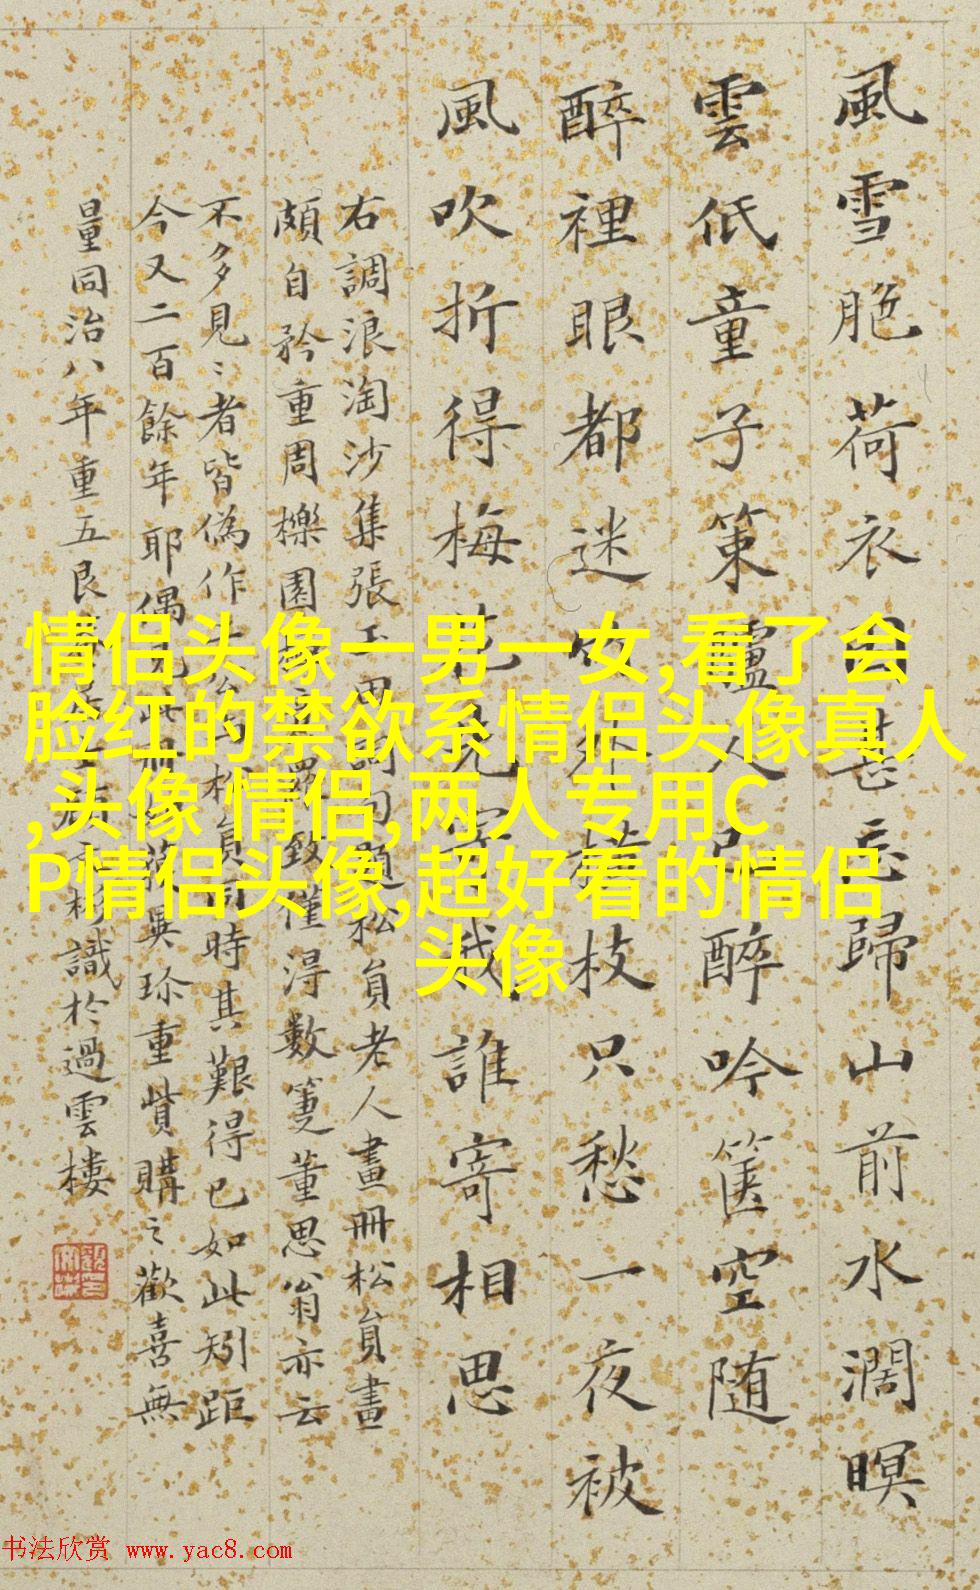 風雪脃荷衣甚忘歸山前水濶暝
雲低童子策驢人醉吟篋空随
醉裡眼都迷外横枝只愁一夜被
風吹折得梅花誰寄相思
右調浪淘沙集張玉田詞句題松員老人畫冊松員畫
頗自矜重周櫟園致僅得數箑董思翁亦云
不多見〻者皆偽作松員同時其艱得已如此矧距
今又二百餘年耶偶見此冊異珍重貲購之歡喜無
量同治八年重五艮識於過雲樓
情侣头像一男一女,看了会
脸红的禁欲系情侣头像真人
,头像 情侣,两人专用C
P情侣头像,超好看的情侣
头像
书法欣赏 www.yac8.com